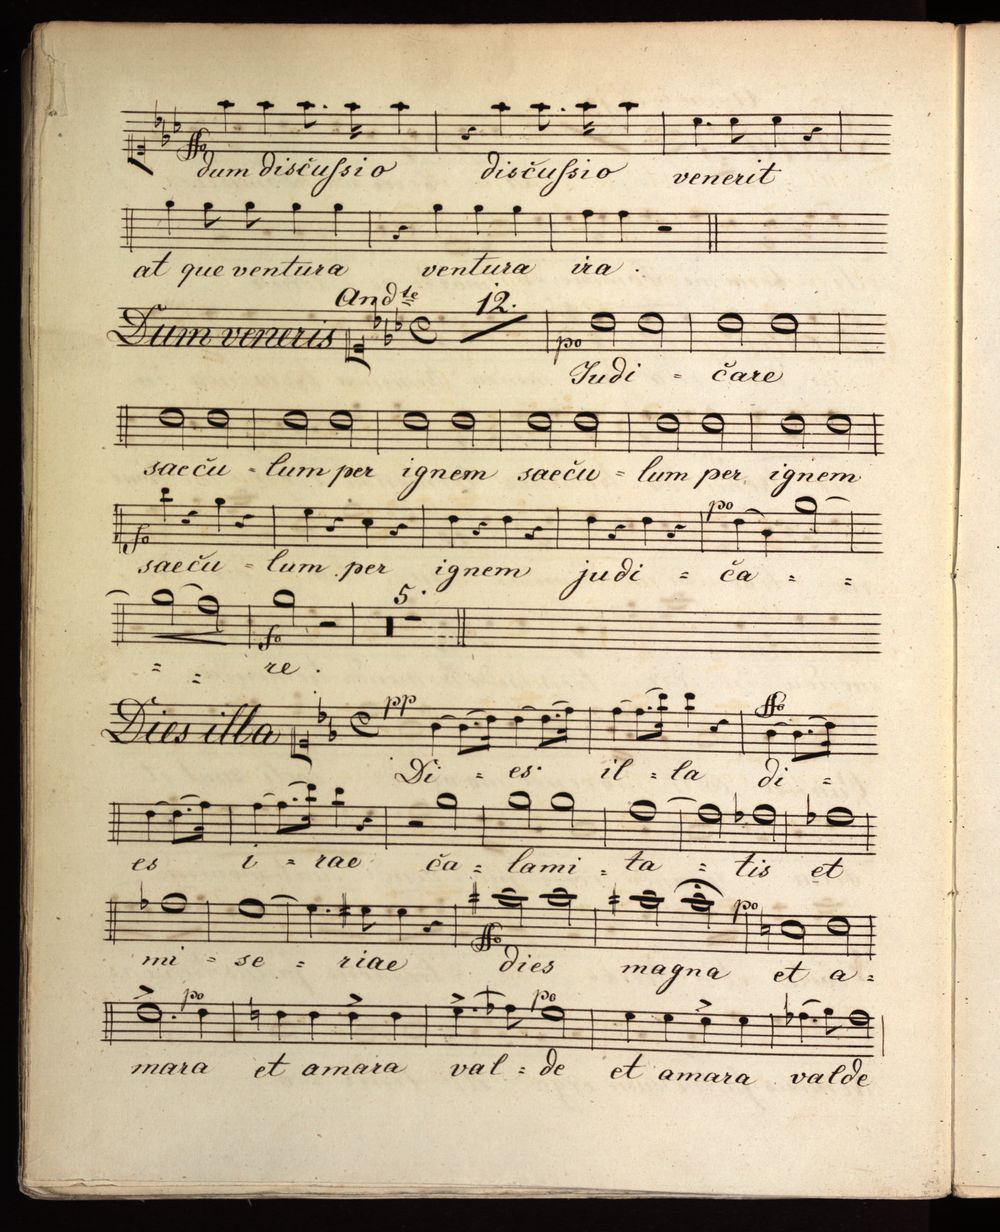 ffo
dum discussio discussio venerit
at que ventura ventura ira.
Andte
Dum veneris 12. po
Judi = care
saecu = lum per ignem saecu = lum per ignem
fo po
saecu = lum per ignem judi = ca = =
fo 5.
= = re.
Dies illa pp ffo
Di = es il = la di =
es i = rae ca = lami = ta = tis et
ffo po
mi = se = riae dies magna et a =
po po
mara et amara val = de et amara valde